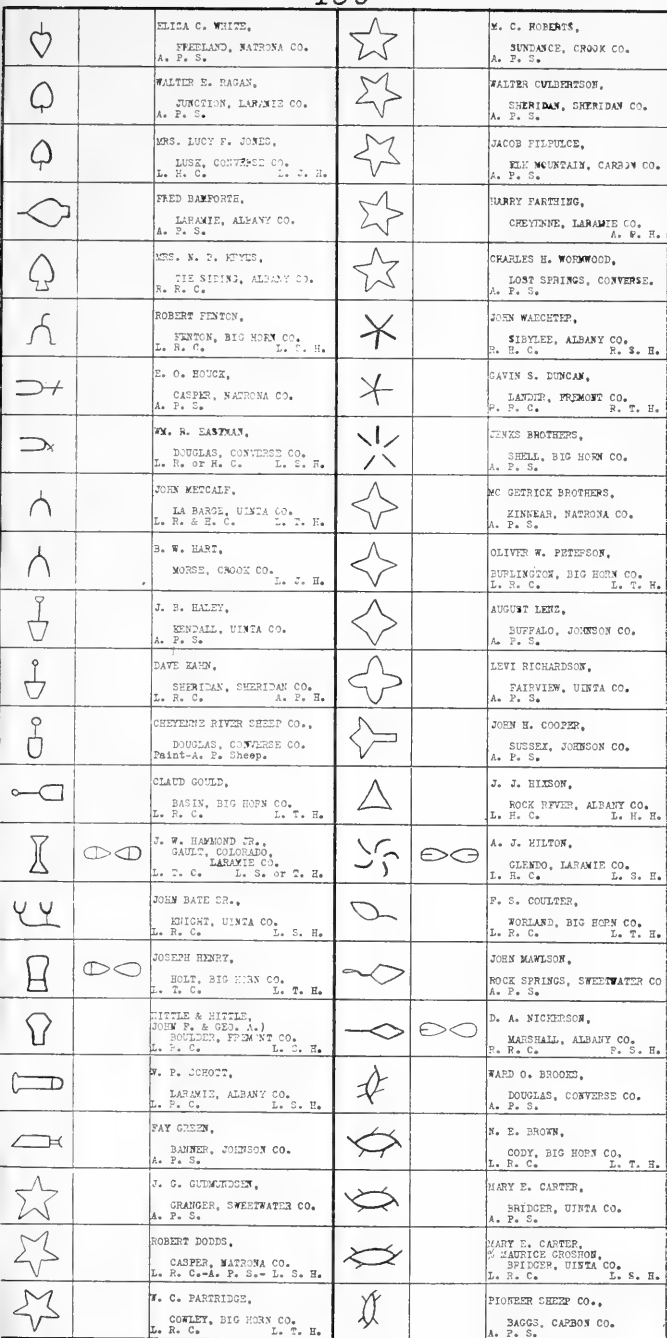 ELIZA C. WHITE,
FREELAND, NATRONA CO.
A. P. S.
WALTER E. RAGAN,
JUNCTION, LARAMIE CO.
A. P. S.
MRS. LUCY F. JONES,
LUSK, CONVERSE CO.
L. H. C. L. J. H.
FRED BAMFORTH,
LARAMIE, ALBANY CO.
A. P. S.
MRS. N. P. KEYES,
TIE SIDING, ALBANY CO.
R. R. C.
ROBERT FENTON,
FENTON, BIG HORN CO.
L. R. C. L. S. H.
E. O. HOUCK,
CASPER, NATRONA CO.
A. P. S.
WM. R. EASTMAN,
DOUGLAS, CONVERSE CO.
L. R. or H. C. L. S. H.
JOHN METCALF,
LA BARGE, UINTA CO.
L. R. & H. C. L. T. H.
B. W. HART,
MORSE, CROOK CO.
L. J. H.
J. B. HALEY,
KENDALL, UINTA CO.
A. P. S.
DAVE KAHN,
SHERIDAN, SHERIDAN CO.
L. R. C. A. P. H.
CHEYENNE RIVER SHEEP CO.,
DOUGLAS, CONVERSE CO.
Paint-A. P. Sheep.
CLAUD GOULD,
BASIN, BIG HORN CO.
L. R. C. L. T. H.
J. W. HAMMOND JR.,
GAULT, COLORADO,
LARAMIE CO.
L. T. C. L. S. or T. H.
JOHN BATE SR.,
KNIGHT, UINTA CO.
L. R. C. L. S. H.
JOSEPH HENRY,
HOLT, BIG HORN CO.
L. T. C. L. T. H.
HITTLE & HITTLE,
JOHN F. & GEO. A.)
BOULDER, FREMONT CO.
L. R. C. L. S. H.
W. P. SCHOTT,
LARAMIE, ALBANY CO.
L. R. C. L. S. H.
FAY GREEN,
BANNER, JOHNSON CO.
A. P. S.
J. G. GUDMUNDSEN,
GRANGER, SWEETWATER CO.
A. P. S.
ROBERT DODDS,
CASPER, NATRONA CO.
L. R. C.-A. P. S.- L. S. H.
W. C. PARTRIDGE,
COWLEY, BIG HORN CO.
L. R. C. L. T. H.
M. C. ROBERTS,
SUNDANCE, CROOK CO.
A. P. S.
WALTER CULBERTSON,
SHERIDAN, SHERIDAN CO.
A. P. S.
JACOB FILPULCE,
ELK MOUNTAIN, CARBON CO.
A. P. S.
HARRY FARTHING,
CHEYENNE, LARAMIE CO.
A. P. H.
CHARLES H. WORMWOOD,
LOST SPRINGS, CONVERSE.
A. P. S.
JOHN WAECHTER,
SIBYLEE, ALBANY CO.
R. H. C. R. S. H.
GAVIN S. DUNCAN,
LANDER, FREMONT CO.
R. R. C. R. T. H.
JENKS BROTHERS,
SHELL, BIG HORN CO.
A. P. S.
MC GETRICK BROTHERS,
KINNEAR, NATRONA CO.
A. P. S.
OLIVER W. PETERSON,
BURLINGTON, BIG HORN CO.
L. R. C. L. T. H.
AUGUST LENZ,
BUFFALO, JOHNSON CO.
A. P. S.
LEVI RICHARDSON,
FAIRVIEW, UINTA CO.
A. P. S.
JOHN H. COOPER,
SUSSEX, JOHNSON CO.
A. P. S.
J. J. HIXSON,
ROCK RIVER, ALBANY CO.
L. H. C. L. H. H.
A. J. HILTON,
GLENDO, LARAMIE CO.
L. H. C. L. S. H.
F. S. COULTER,
WORLAND, BIG HORN CO.
L. R. C. L. T. H.
JOHN MAWLSON,
ROCK SPRINGS, SWEETWATER CO
A. P. S.
D. A. NICKERSON,
MARSHALL, ALBANY CO.
R. R. C. R. S. H.
WARD O. BROOKS,
DOUGLAS, CONVERSE CO.
A. P. S.
N. E. BROWN,
CODY, BIG HORN CO.
L. R. C. L. T. H.
MARY E. CARTER,
BRIDGER, UINTA CO.
A. P. S.
MARY E. CARTER,
% MAURICE GROSHON,
BRIDGER, UINTA CO.
L. R. C. L. S. H.
PIONEER SHEEP CO.,
BAGGS, CARBON CO.
A. P. S.